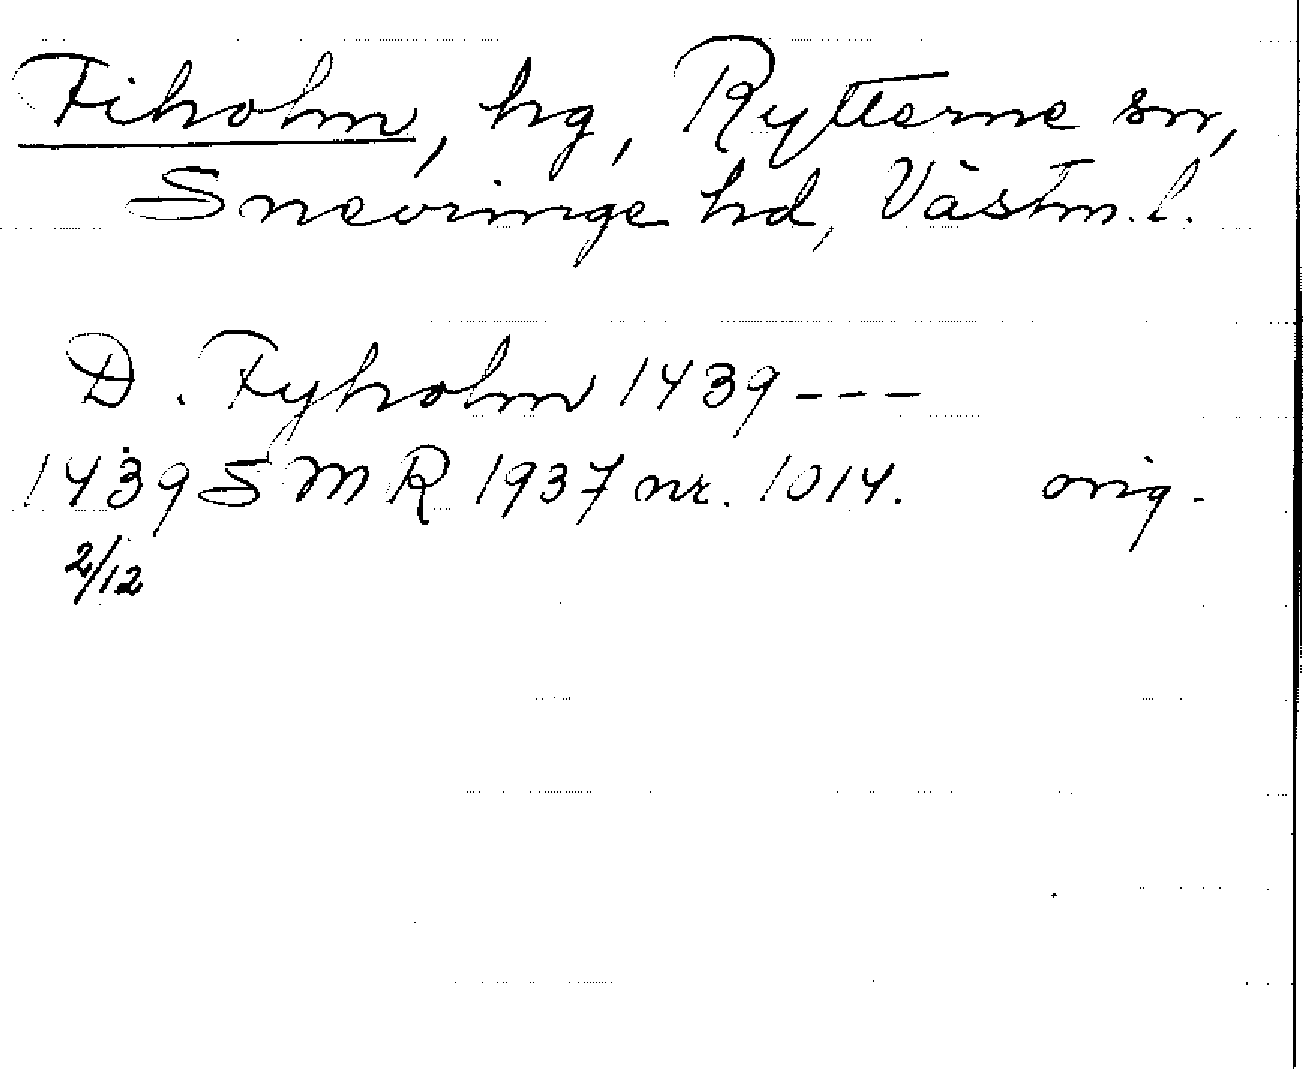 Fiholm, hg, Rytterne sn,
Snevringe hd, Västm. l.
D. Fyholm 1439 - - -
1439 SMR 1937 nr. 1014. orig.
2/12